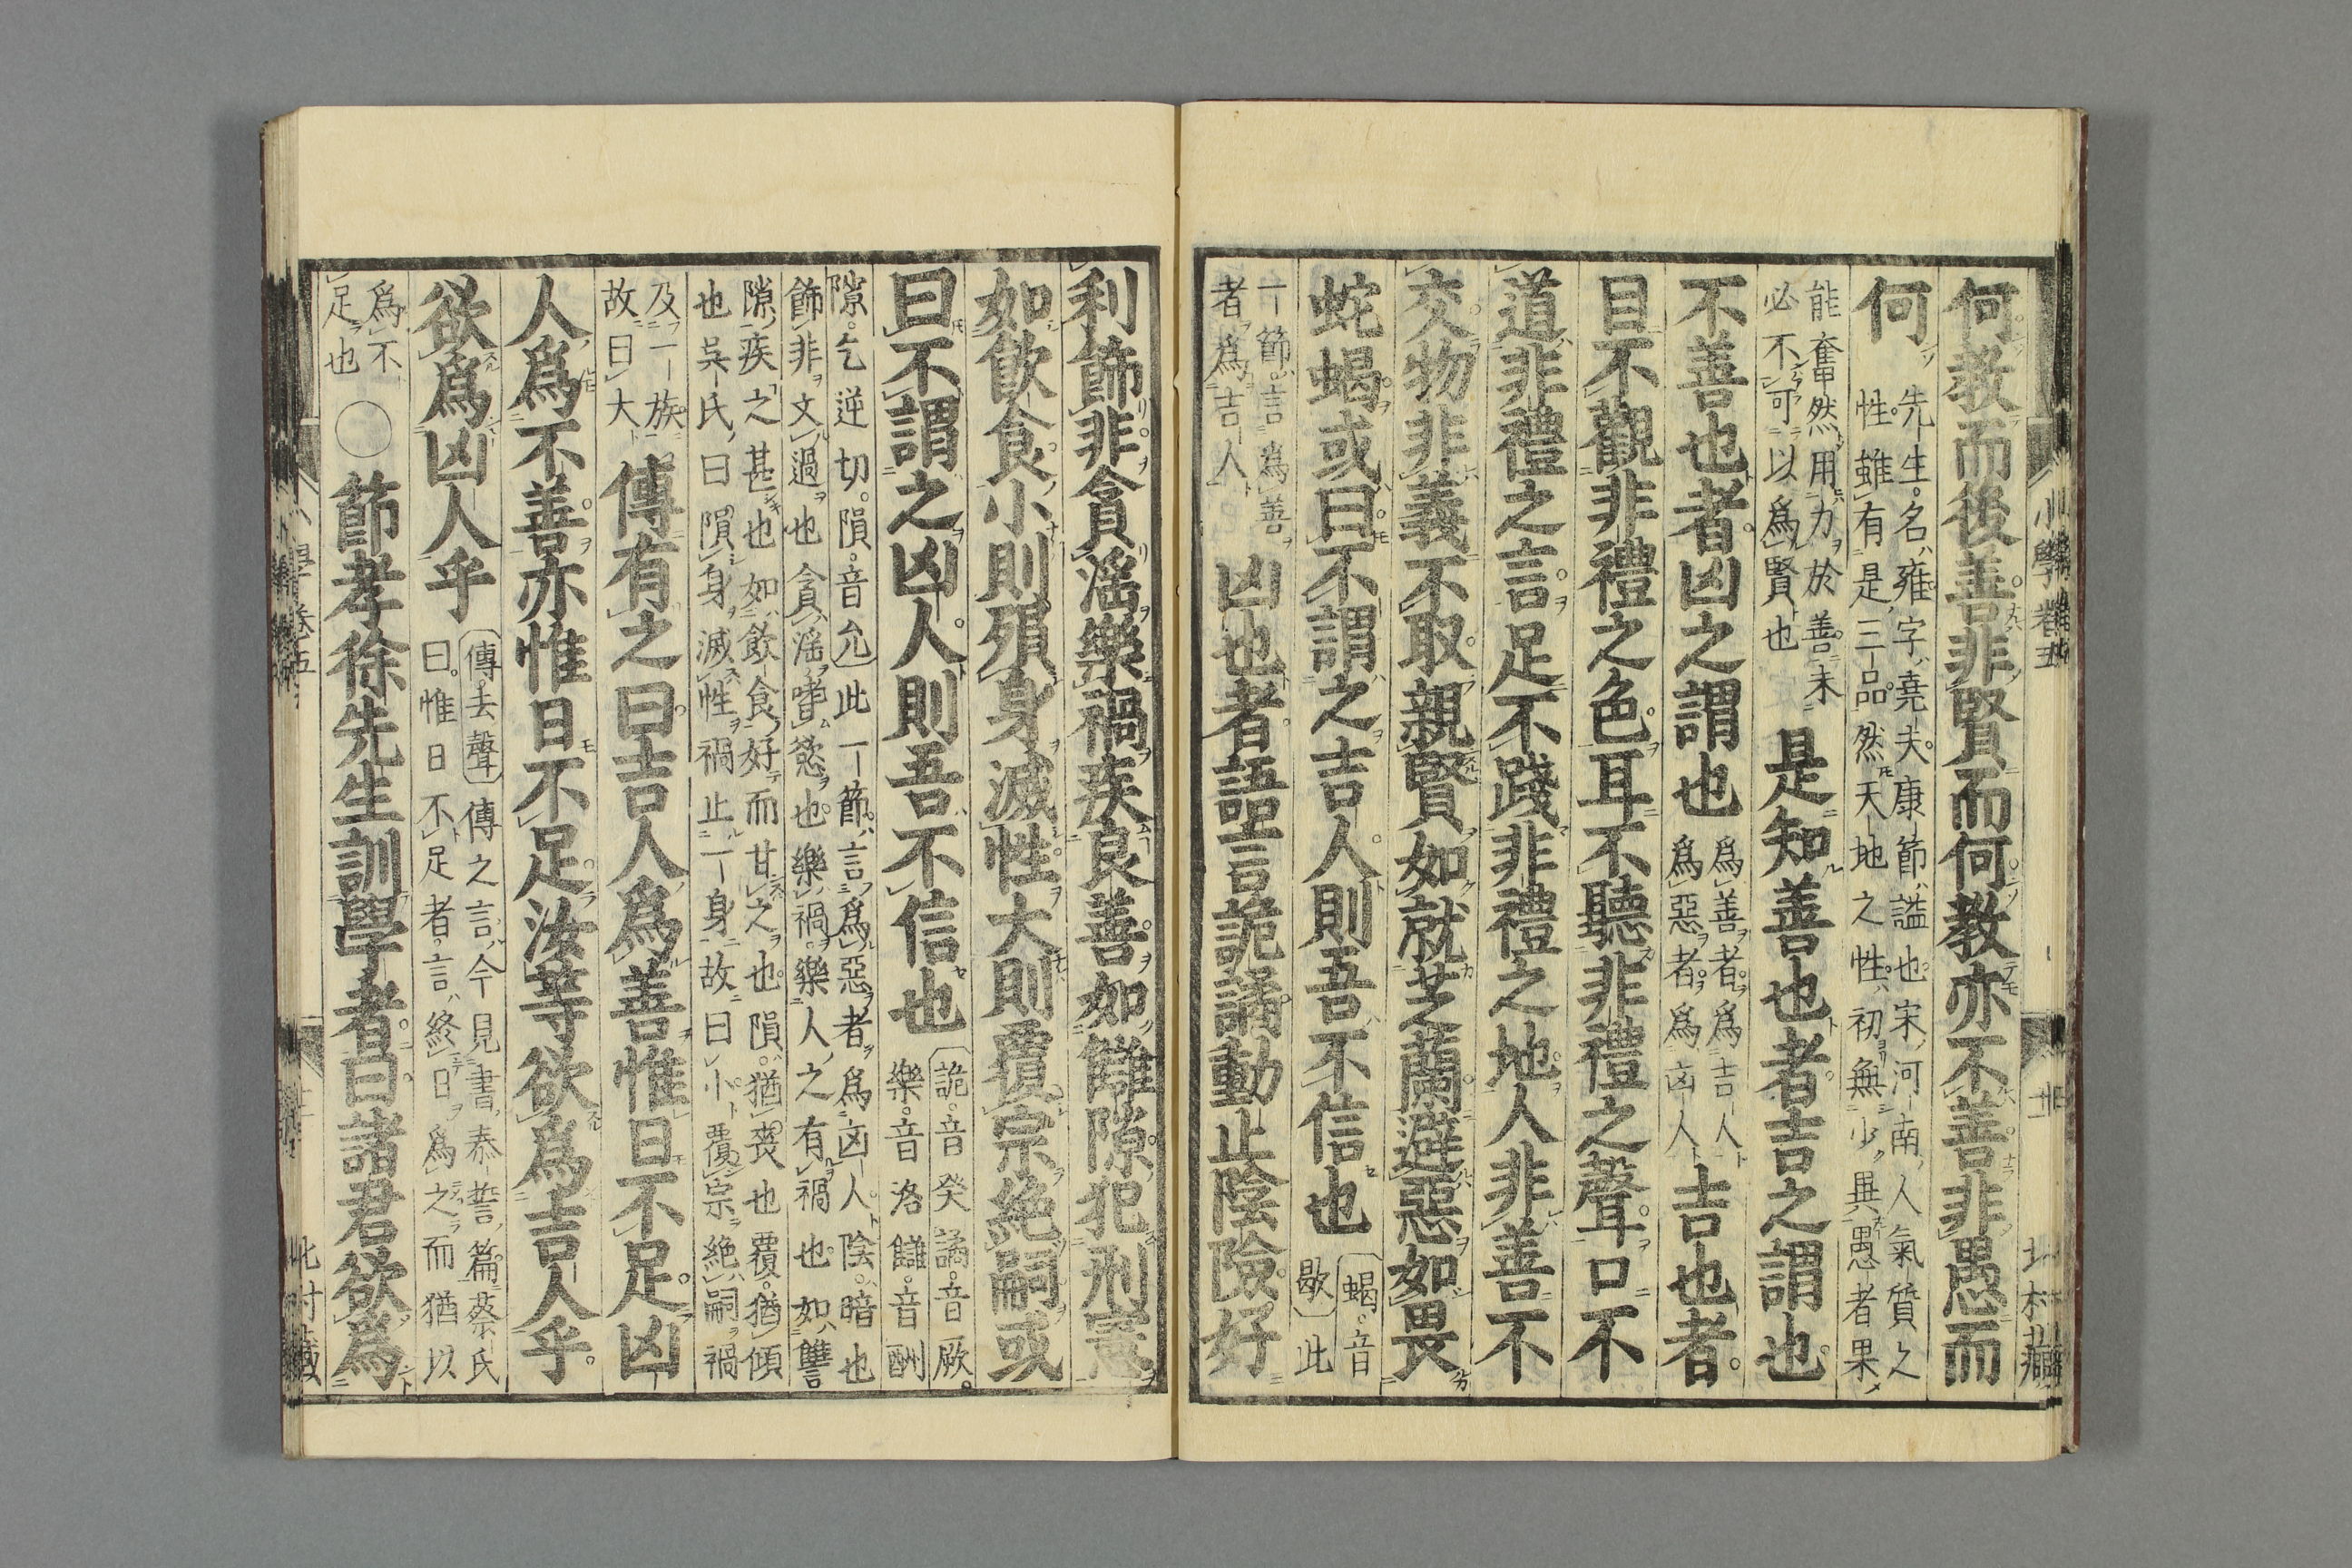 何教而後善非賢而何教亦不善非愚而
何
先生名雍字堯夫康節謚也宋河南人氣質之
性雖有是三品然天地之性初無少異愚者果
能奮然用力於善未
必不可以爲賢也
是知善也者吉之謂也
不善也者凶之謂也
爲善者爲吉人
爲惡者爲凶人
吉也者
目不觀非禮之色耳不聽非禮之聲口不
道非禮之言足不踐非禮之地人非善不
交物非義不取親賢如就芝蘭避惡如畏
蛇蝎或曰不謂之吉人則吾不信也
蝎音
歇
此
一節言爲善
者爲吉人
凶也者語言詭譎動止陰險好
利飾非貪滛樂禍疾良善如讎隙犯刑憲
如飲食小則殞身滅性大則覆宗絶嗣或
曰不謂之凶人則吾不信也
詭音癸譎音厥
樂音洛讎音酬
隙乞逆切隕音允此一節言爲惡者爲凶人陰暗也
飾非文過也貪滛嗜慾也樂禍樂人之有禍也如讐
隙疾之甚也如飲食好而甘之也隕猶喪也覆猶傾
也吳氏曰隕身滅性禍止一身故曰小覆宗絶嗣禍
及一族
故曰大
傳有之曰吉人爲善惟日不足凶
人爲不善亦惟日不足汝等欲爲吉人乎
欲爲凶人乎
傳去聲傳之言今見書泰誓篇蔡氏
曰惟日不足者言終日爲之而猶以
爲不
足也
○節孝徐先生訓學者曰諸君欲爲
小學卷五
小學卷五
北村藏